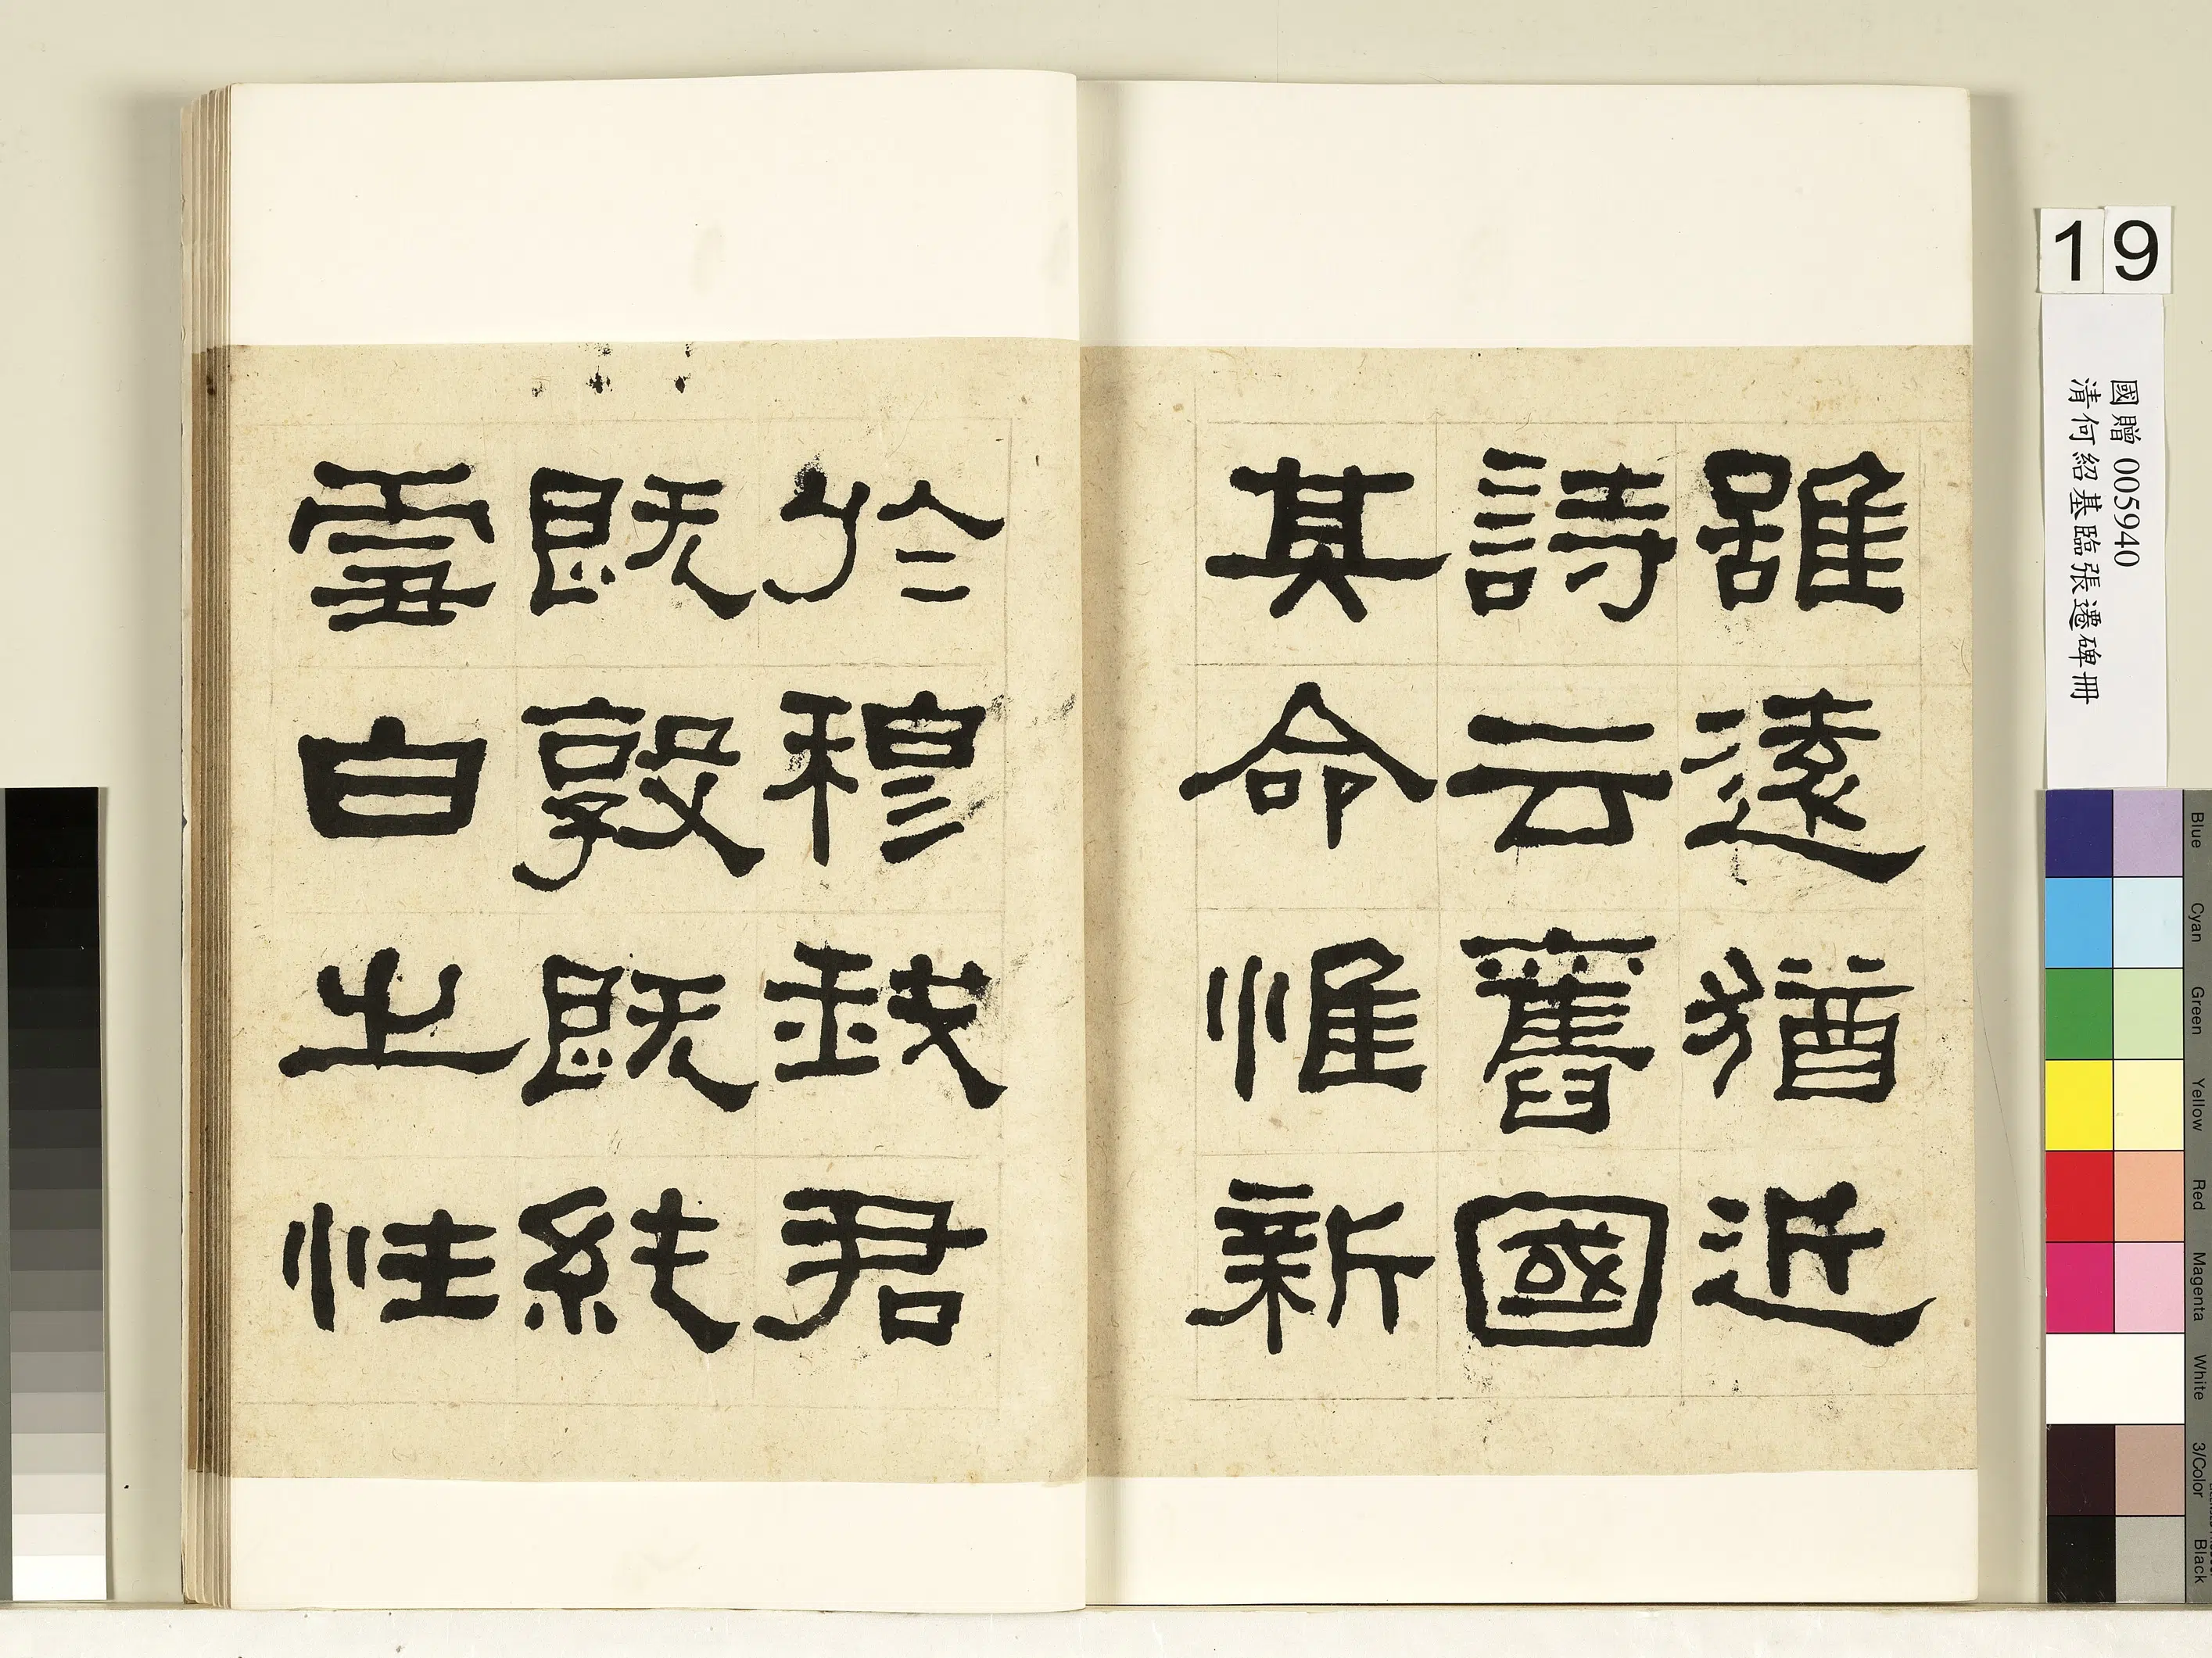 雖遠猶近
詩云舊國
其命惟新
於穆我君
既敦既純
雪白之性
19
國贈 005940
清何紹基臨張遷碑冊
Blue
Cyan
Green
Yellow
Red
Magenta
White
3/Color
Black